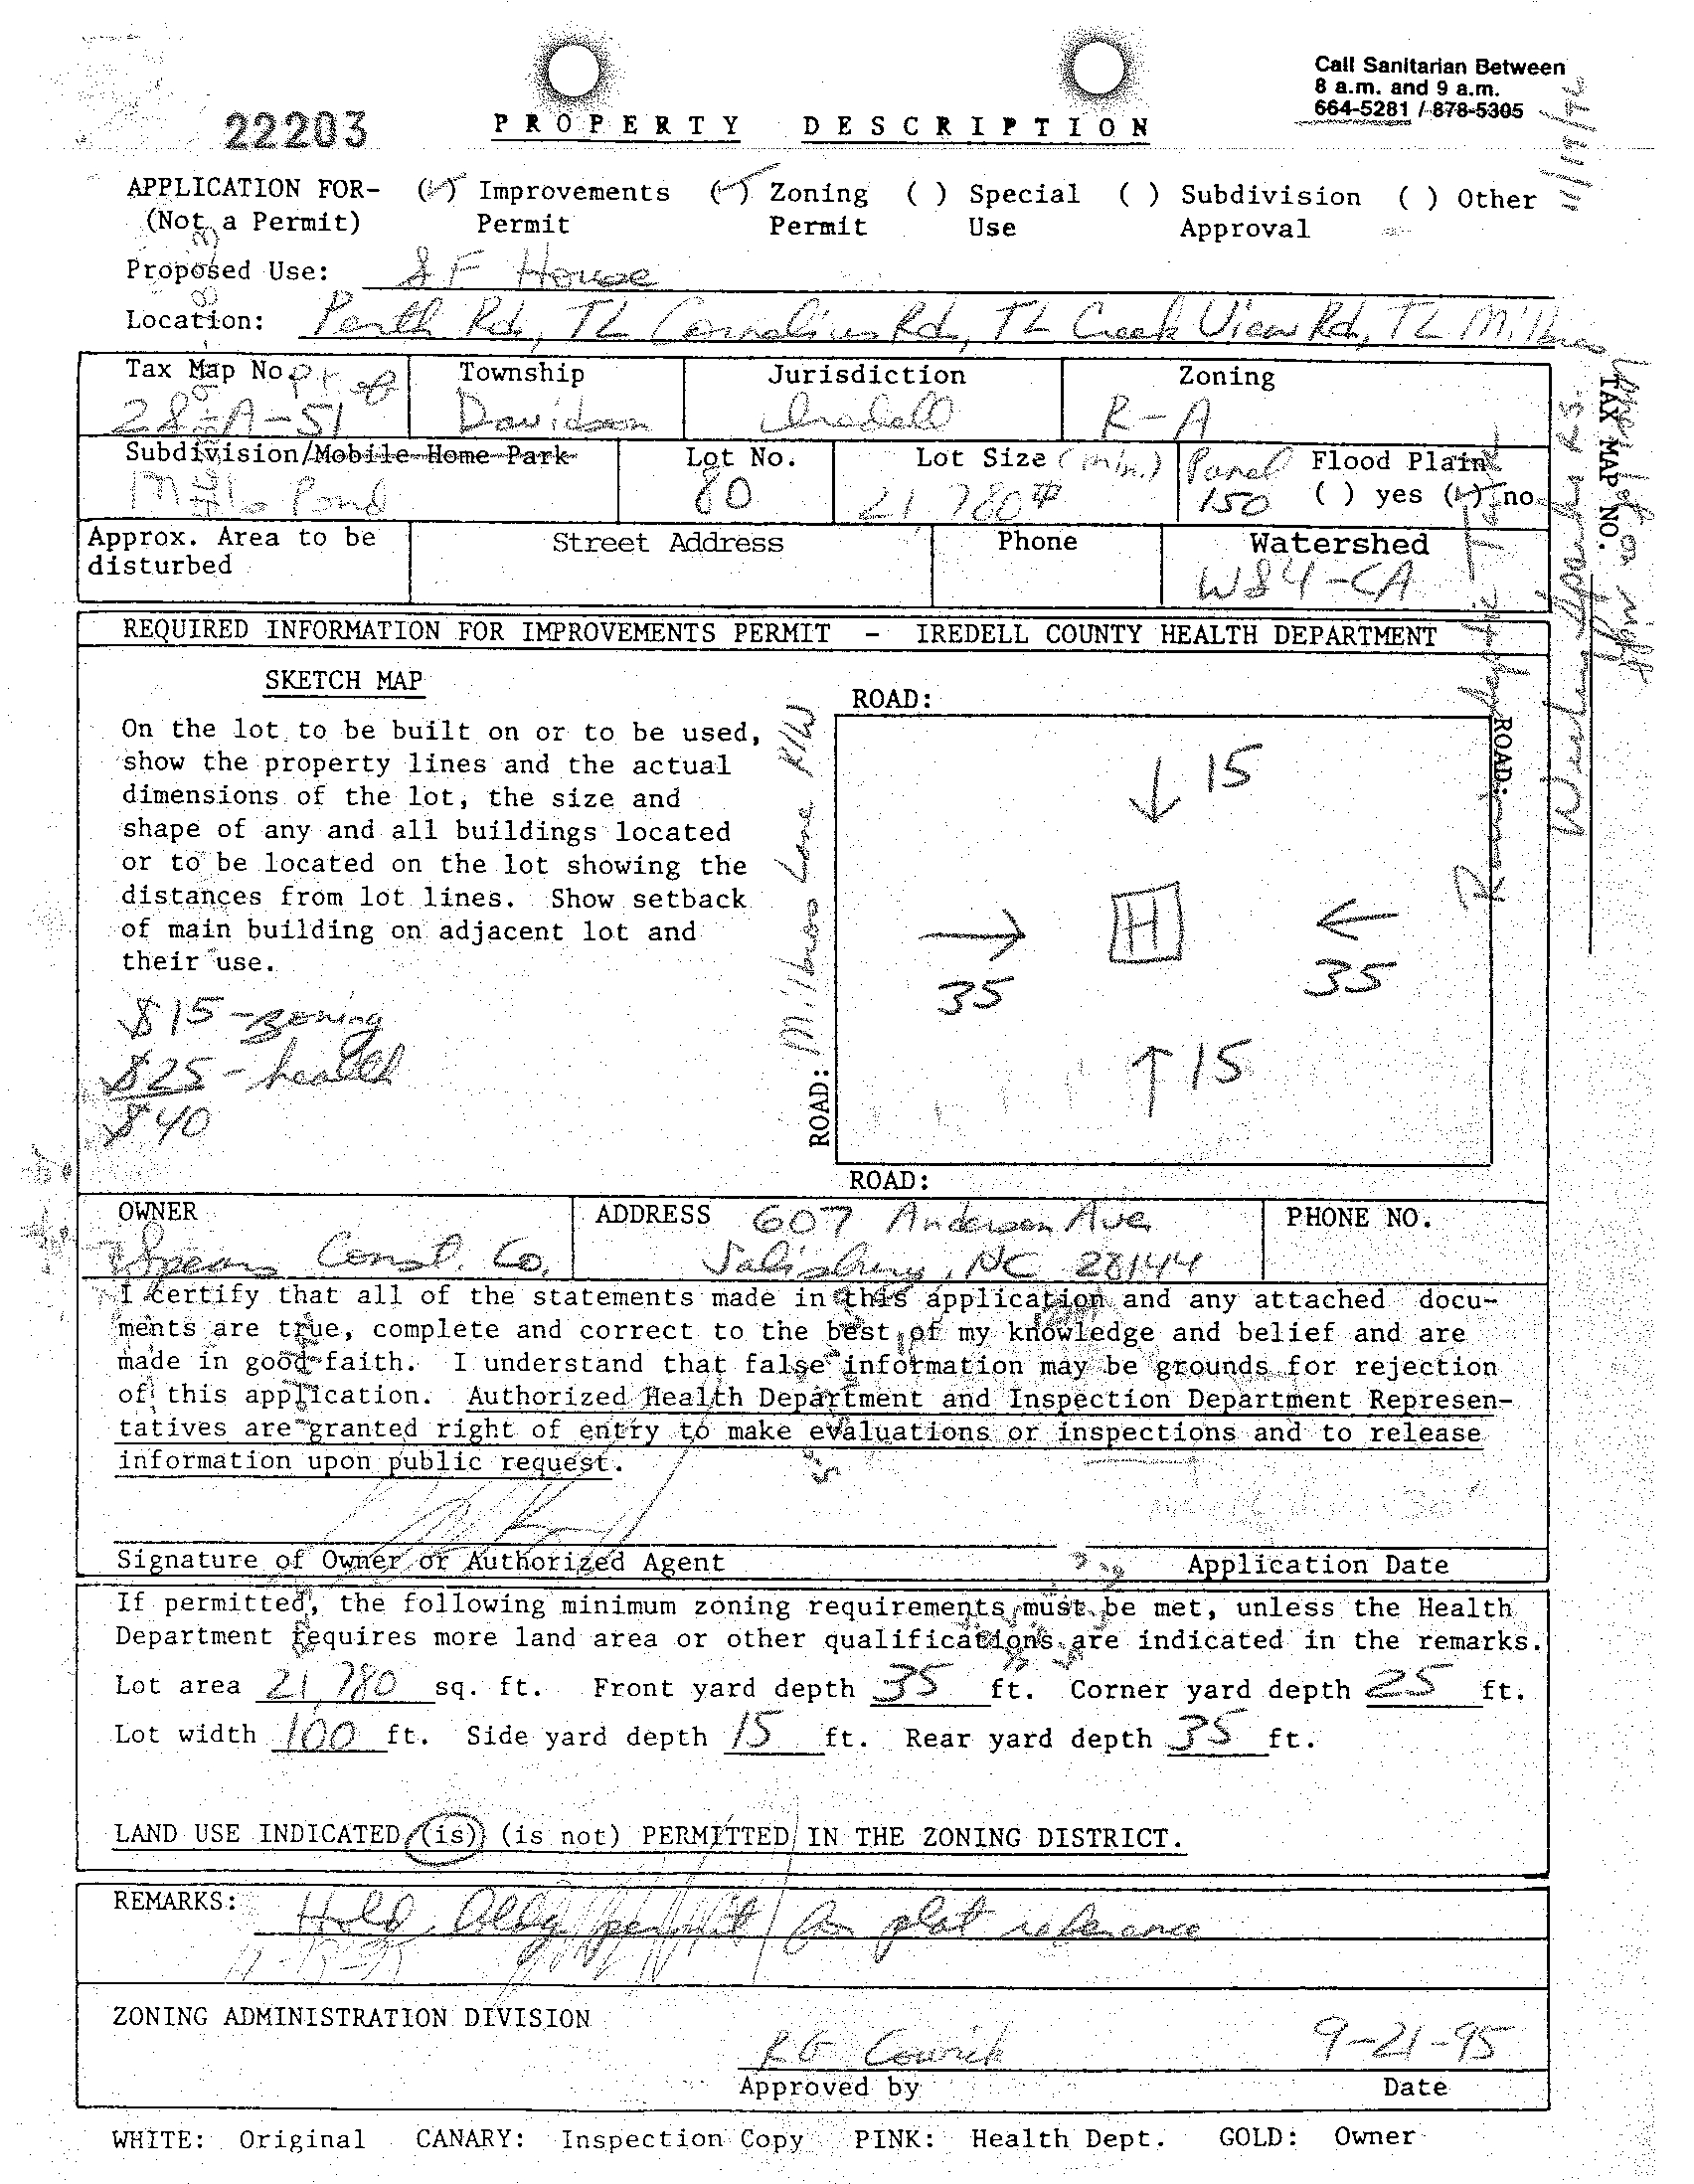 Call Sanitarian Between
8 a.m. and 9 a.m.
664-5281 / 878-5305
22203
PROPERTY DESCRIPTION
APPLICATION FOR- (✓) Improvements (✓) Zoning ( ) Special ( ) Subdivision ( ) Other
(Not a Permit) Permit Permit Use Approval
Proposed Use: SF House
Location: Perth Rd, TL Cornelius Rd, TL Creek View Rd, TL Milbros
Lane
on right
Tax Map No. Pt of Township Jurisdiction Zoning
28-A-51 Davidson Iredell R-A
Subdivision/Mobile Home Park Lot No. Lot Size (min.) Panel Flood Plain
Mills Pond 80 21,780 # 150 ( ) yes (✓) no
Approx. Area to be Street Address Phone Watershed
disturbed WS4-CA
TAX MAP NO.
REQUIRED INFORMATION FOR IMPROVEMENTS PERMIT - IREDELL COUNTY HEALTH DEPARTMENT
SKETCH MAP
ROAD:
On the lot to be built on or to be used,
show the property lines and the actual
dimensions of the lot, the size and
shape of any and all buildings located
or to be located on the lot showing the
distances from lot lines. Show setback
of main building on adjacent lot and
their use.
$15-zoning
$25-health
$40
ROAD: Milbros Lane R/W
↓ 15
→ H ←
35 35
↑ 15
ROAD:
ROAD:
OWNER ADDRESS 607 Anderson Ave PHONE NO.
Spears Const. Co. Salisbury, NC 28144
I certify that all of the statements made in this application and any attached docu-
ments are true, complete and correct to the best of my knowledge and belief and are
made in good faith. I understand that false information may be grounds for rejection
of this application. Authorized Health Department and Inspection Department Represen-
tatives are granted right of entry to make evaluations or inspections and to release
information upon public request.
Signature of Owner or Authorized Agent Application Date
If permitted, the following minimum zoning requirements must be met, unless the Health
Department requires more land area or other qualifications are indicated in the remarks.
Lot area 21,780 sq. ft. Front yard depth 35 ft. Corner yard depth 25 ft.
Lot width 100 ft. Side yard depth 15 ft. Rear yard depth 35 ft.
LAND USE INDICATED (is) (is not) PERMITTED IN THE ZONING DISTRICT.
REMARKS: Hold Bldg permit for plat reference
ZONING ADMINISTRATION DIVISION
RG 9-21-95
Approved by Date
WHITE: Original CANARY: Inspection Copy PINK: Health Dept. GOLD: Owner